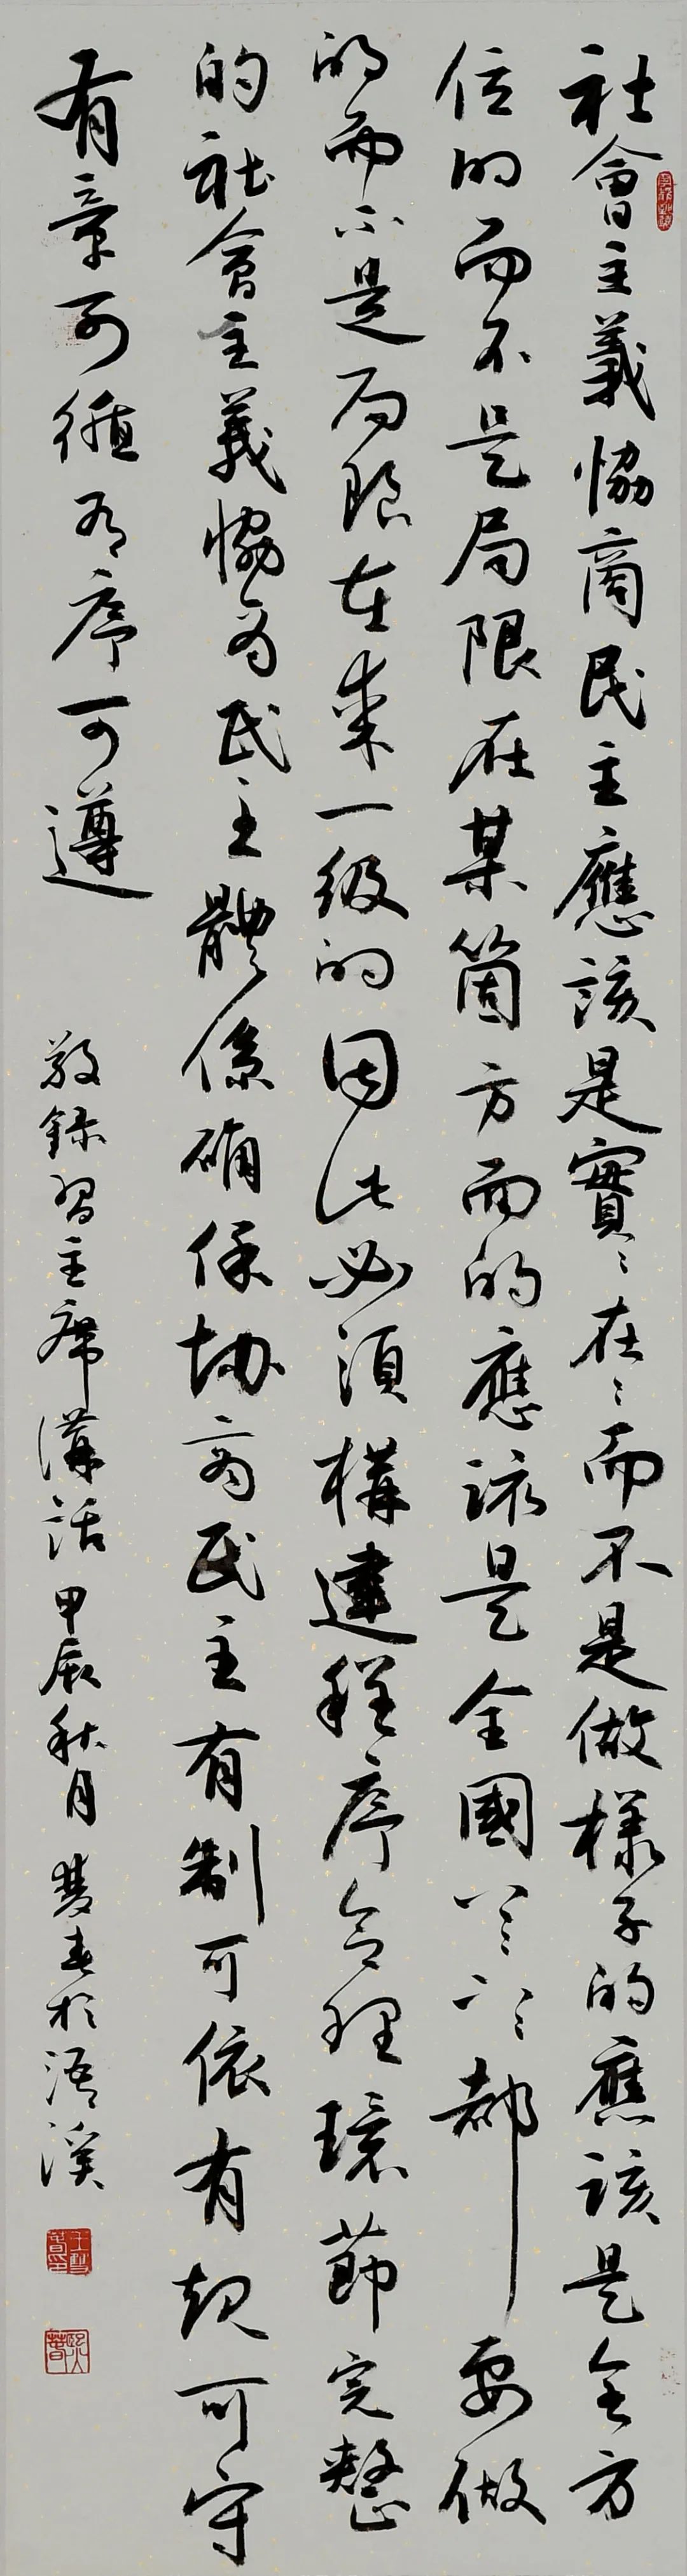 社會主義協商民主應該是實〻在〻而不是做樣子的應該是全方
位的而不是局限在某箇方面的應該是全國上〻下〻都要做
的而不是局限在某一級的因此必須構建程序合理環節完整
的社會主義協商民主體係確保協商民主有制可依有規可守
有章可循有序可遵
敬錄習主席講話甲辰秋月雙春於浯溪